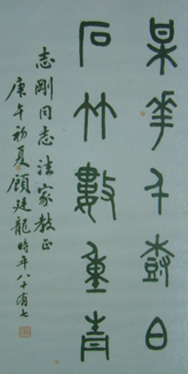 某華千樹白
石竹數重青
志剛同志法家教正
庚午初夏顧廷龍時年八十有七